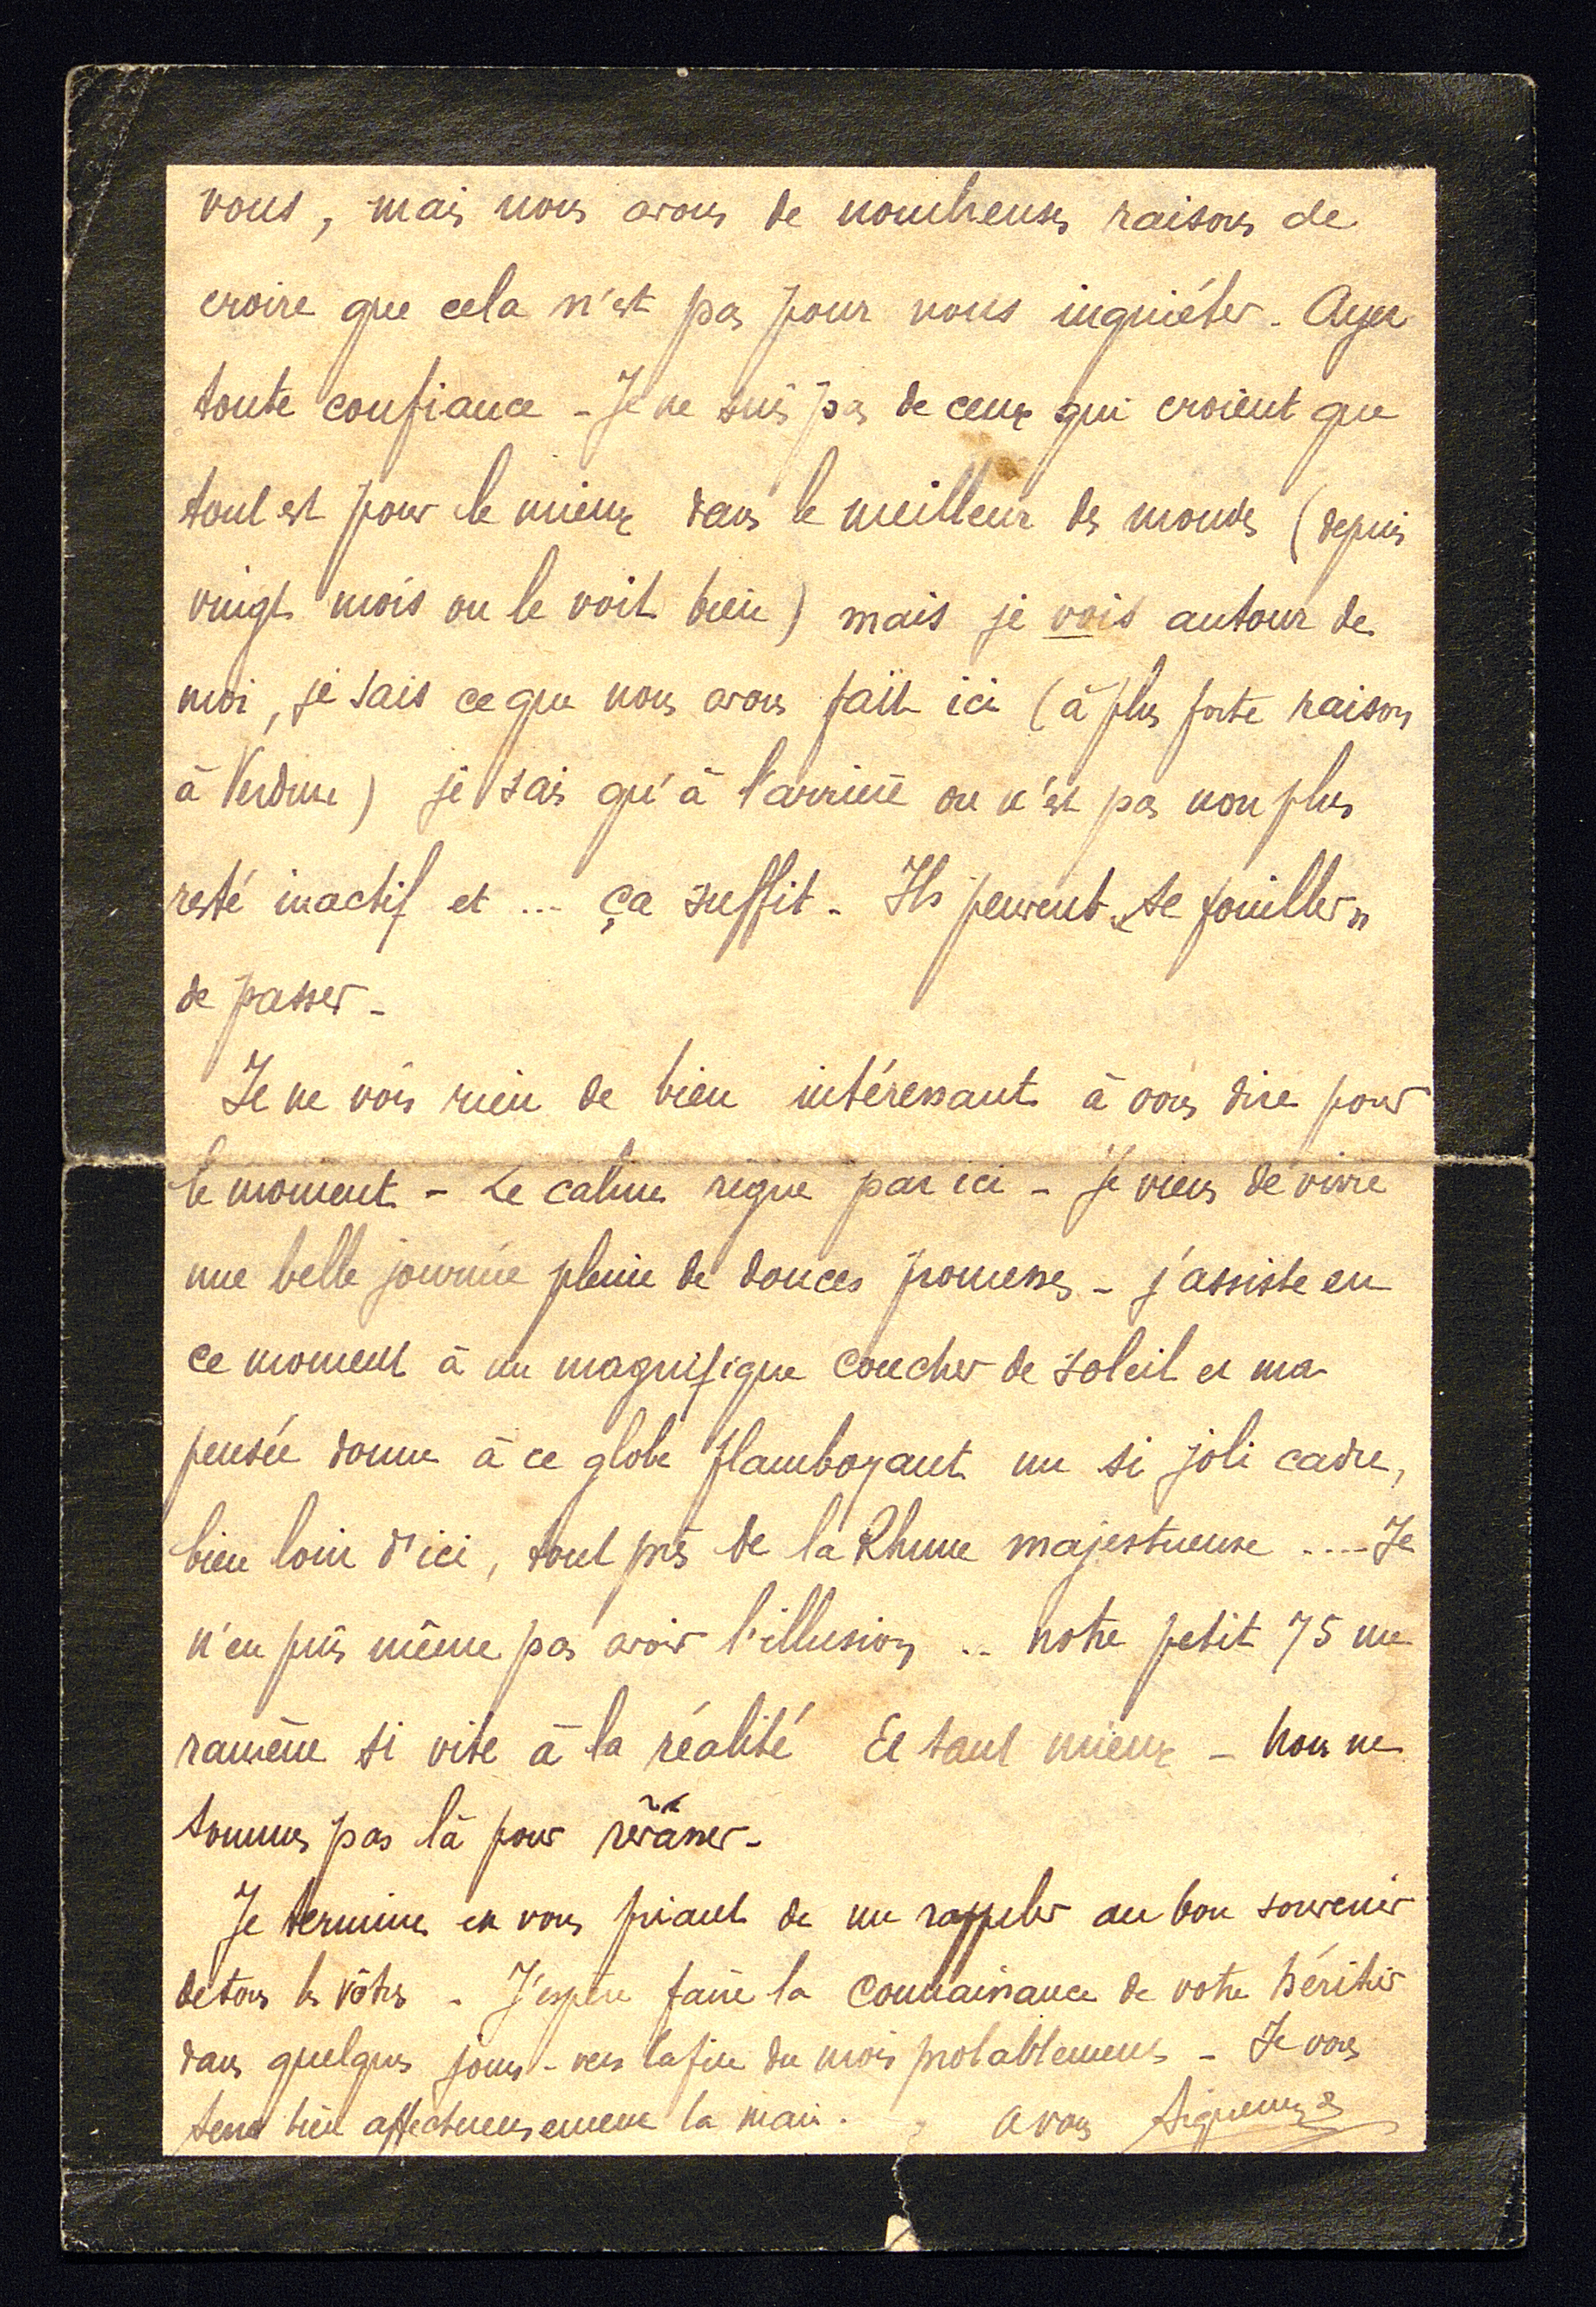 vous, mais nous avons de nombreuses raisons de
croire que cela n'est pas pour nous inquiéter - Ayez
toute confiance - Je ne suis pas de ceux qui croient que
tout est pour le mieux dans le meilleur des mondes (depuis
vingt mois on le voit bien) mais je vois autour de
moi, je sais ce que nous avons fait ici (à plus forte raison
à Verdun) je sais qu'à l'arrière on n'est pas non plus
resté inactif et ... ça suffit - Ils peuvent "se fouiller"
de passer -
Je ne vois rien de bien intéressant à vous dire pour
le moment - Le calme règne par ici - Je viens de vivre
une belle journée pleine de douces promesses - j'assiste en
ce moment à un magnifique coucher de soleil et ma
pensée donne à ce globe flamboyant un si joli cadre,
bien loin d'ici, tout près de la Rhune majestueuse .... Je
n'en puis même pas avoir l'illusion .. notre petit 75 me
ramène si vite à la réalité Et tant mieux - nous ne
sommes pas là pour rêvasser -
Je termine en vous priant de me rappeler au bon souvenir
de tous les vôtres - J'espère faire la connaissance de votre héritier
dans quelques jours - vers la fin du mois probablement - Je vous
serre bien affectueusement la main. a vous